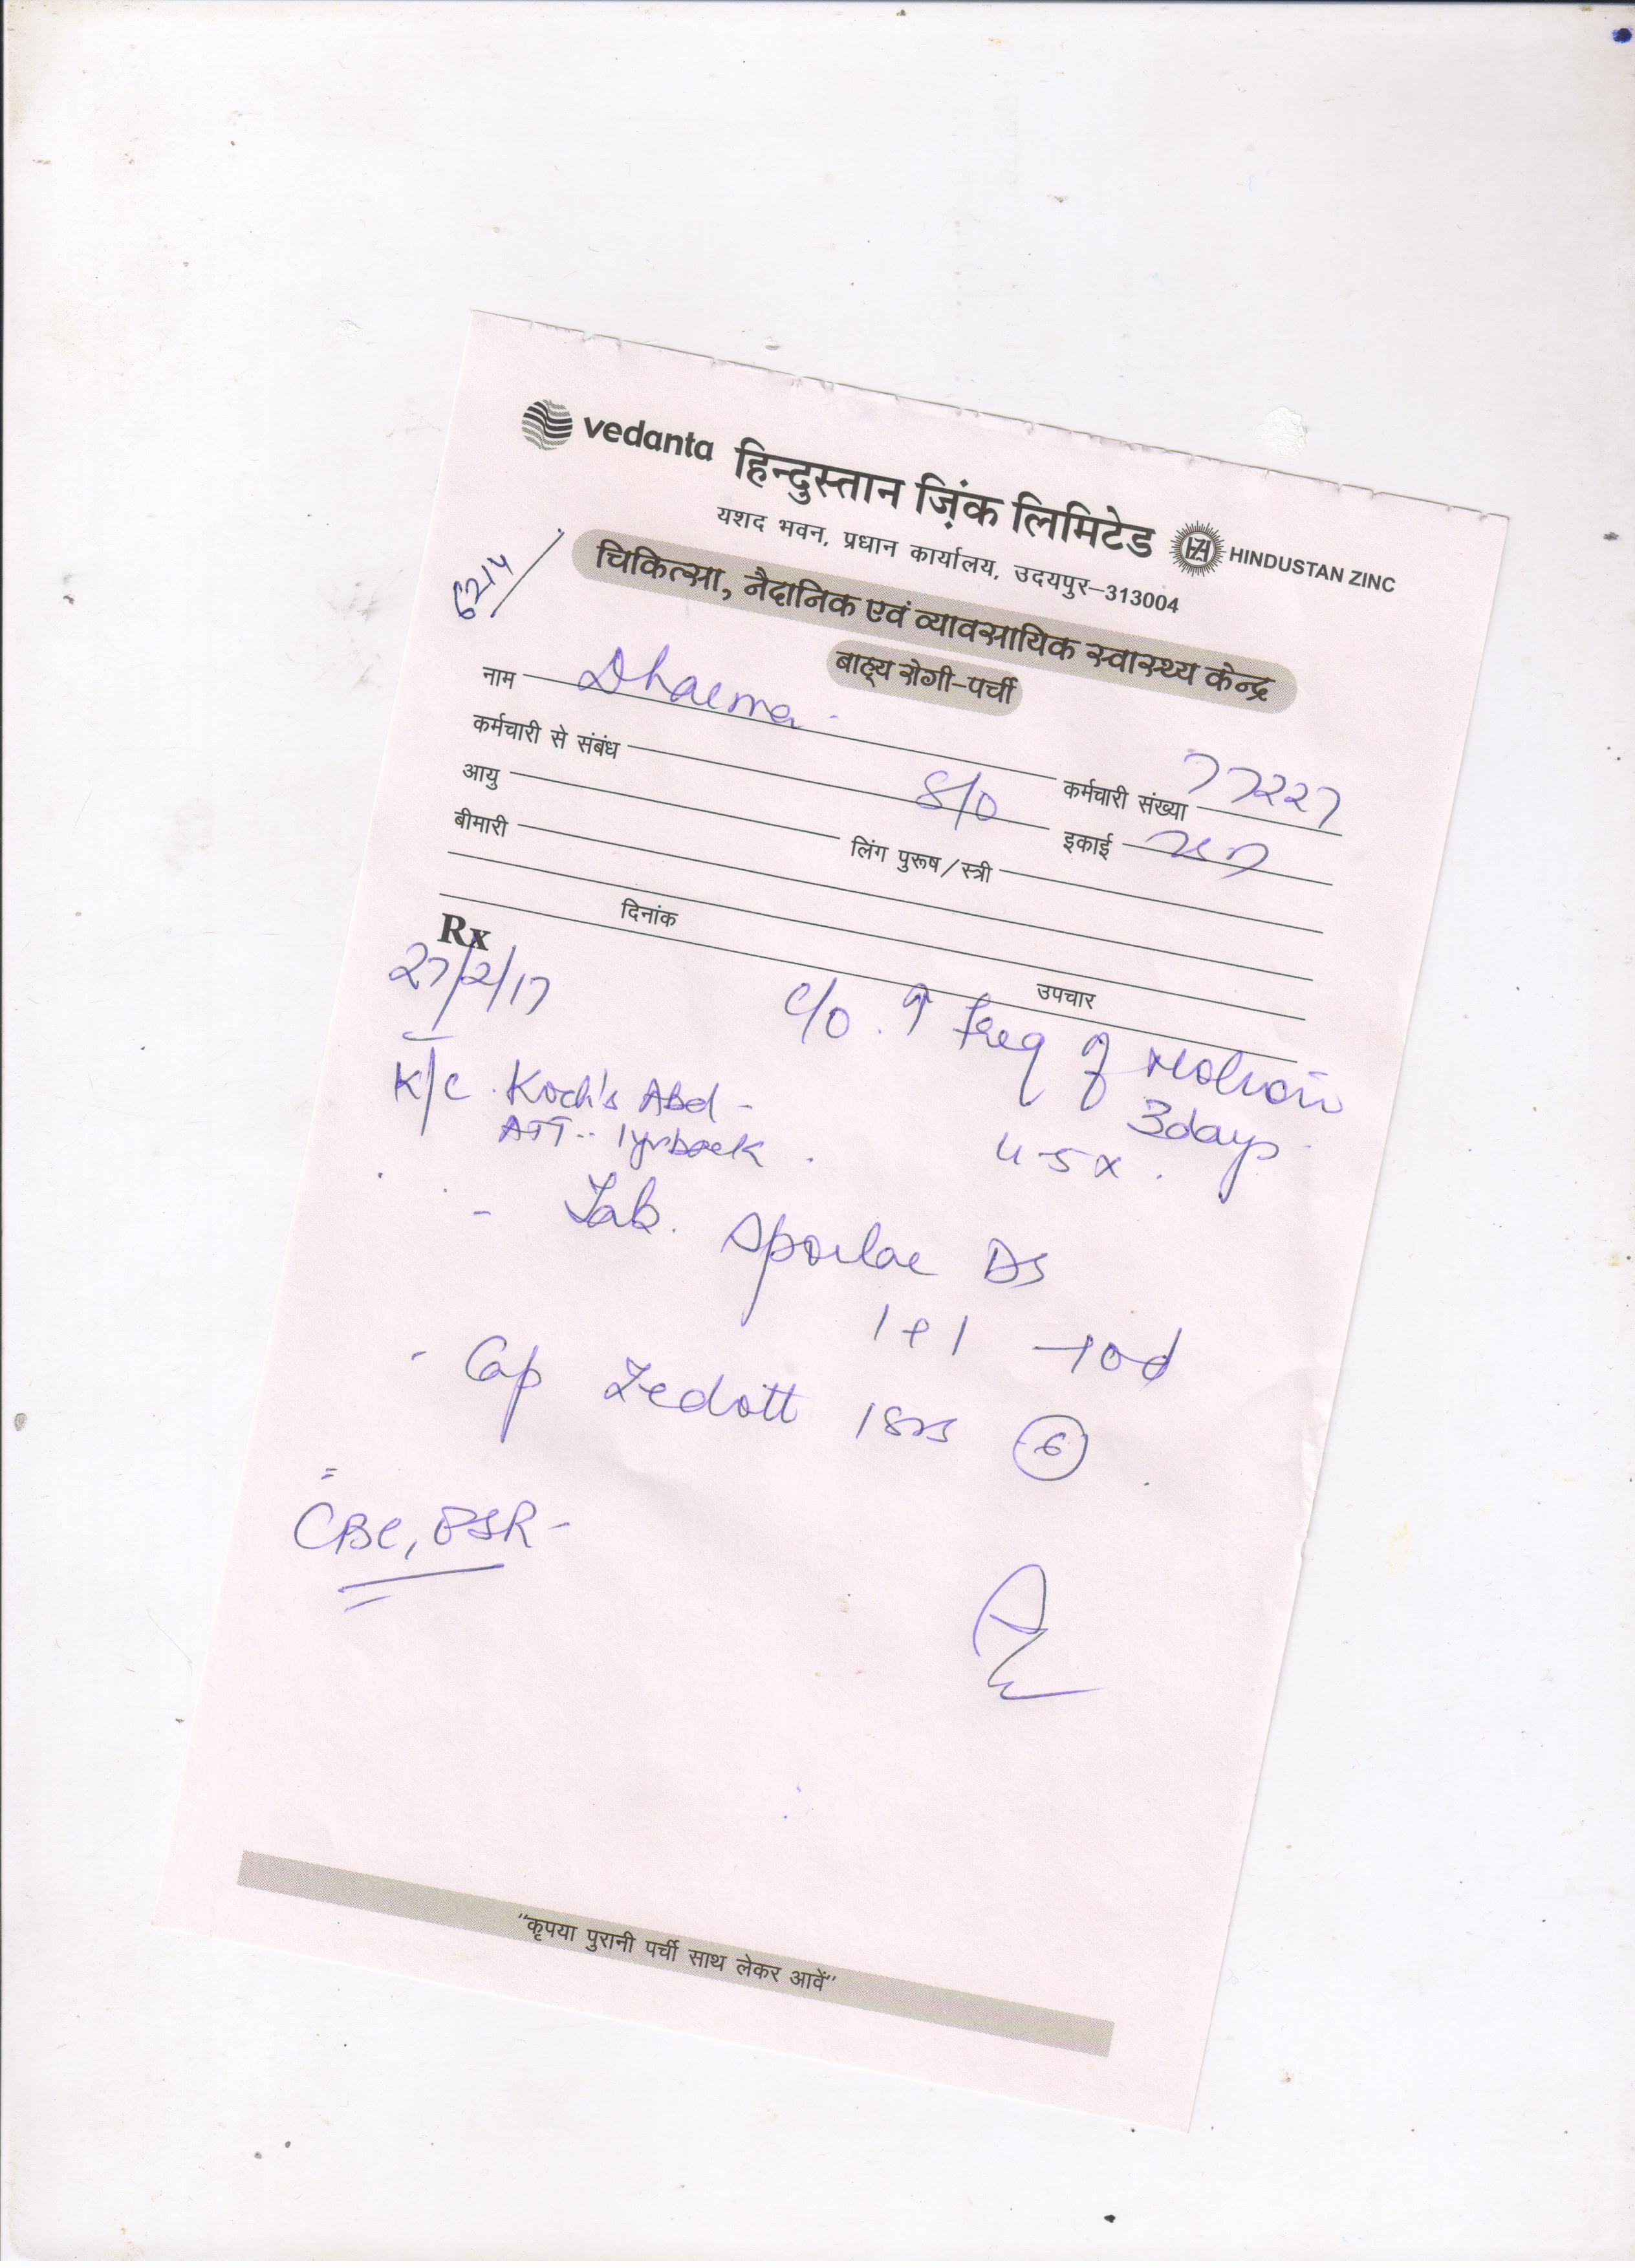 vedanta हिन्दुस्तान ज़िंक लिमिटेड HINDUSTAN ZINC
यशद भवन, प्रधान कार्यालय, उदयपुर–313004
6214
चिकित्सा, नैदानिक एवं व्यावसायिक स्वास्थ्य केन्द्र
बाह्य रोगी-पर्ची
नाम Dharma कर्मचारी संख्या 77227
कर्मचारी से संबंध S/O इकाई
आयु लिंग पुरूष/स्त्री
बीमारी
दिनांक उपचार
Rx
27/2/17 C/O ↑ freq of motion
3days
K/C Koch's Abd -
ATT -- 1yr back 4-5 x
- Tab. Sporlac DS
1+1 - 10d
- Cap Zedott (6)
CBC, ESR -
"कृपया पुरानी पर्ची साथ लेकर आवें"